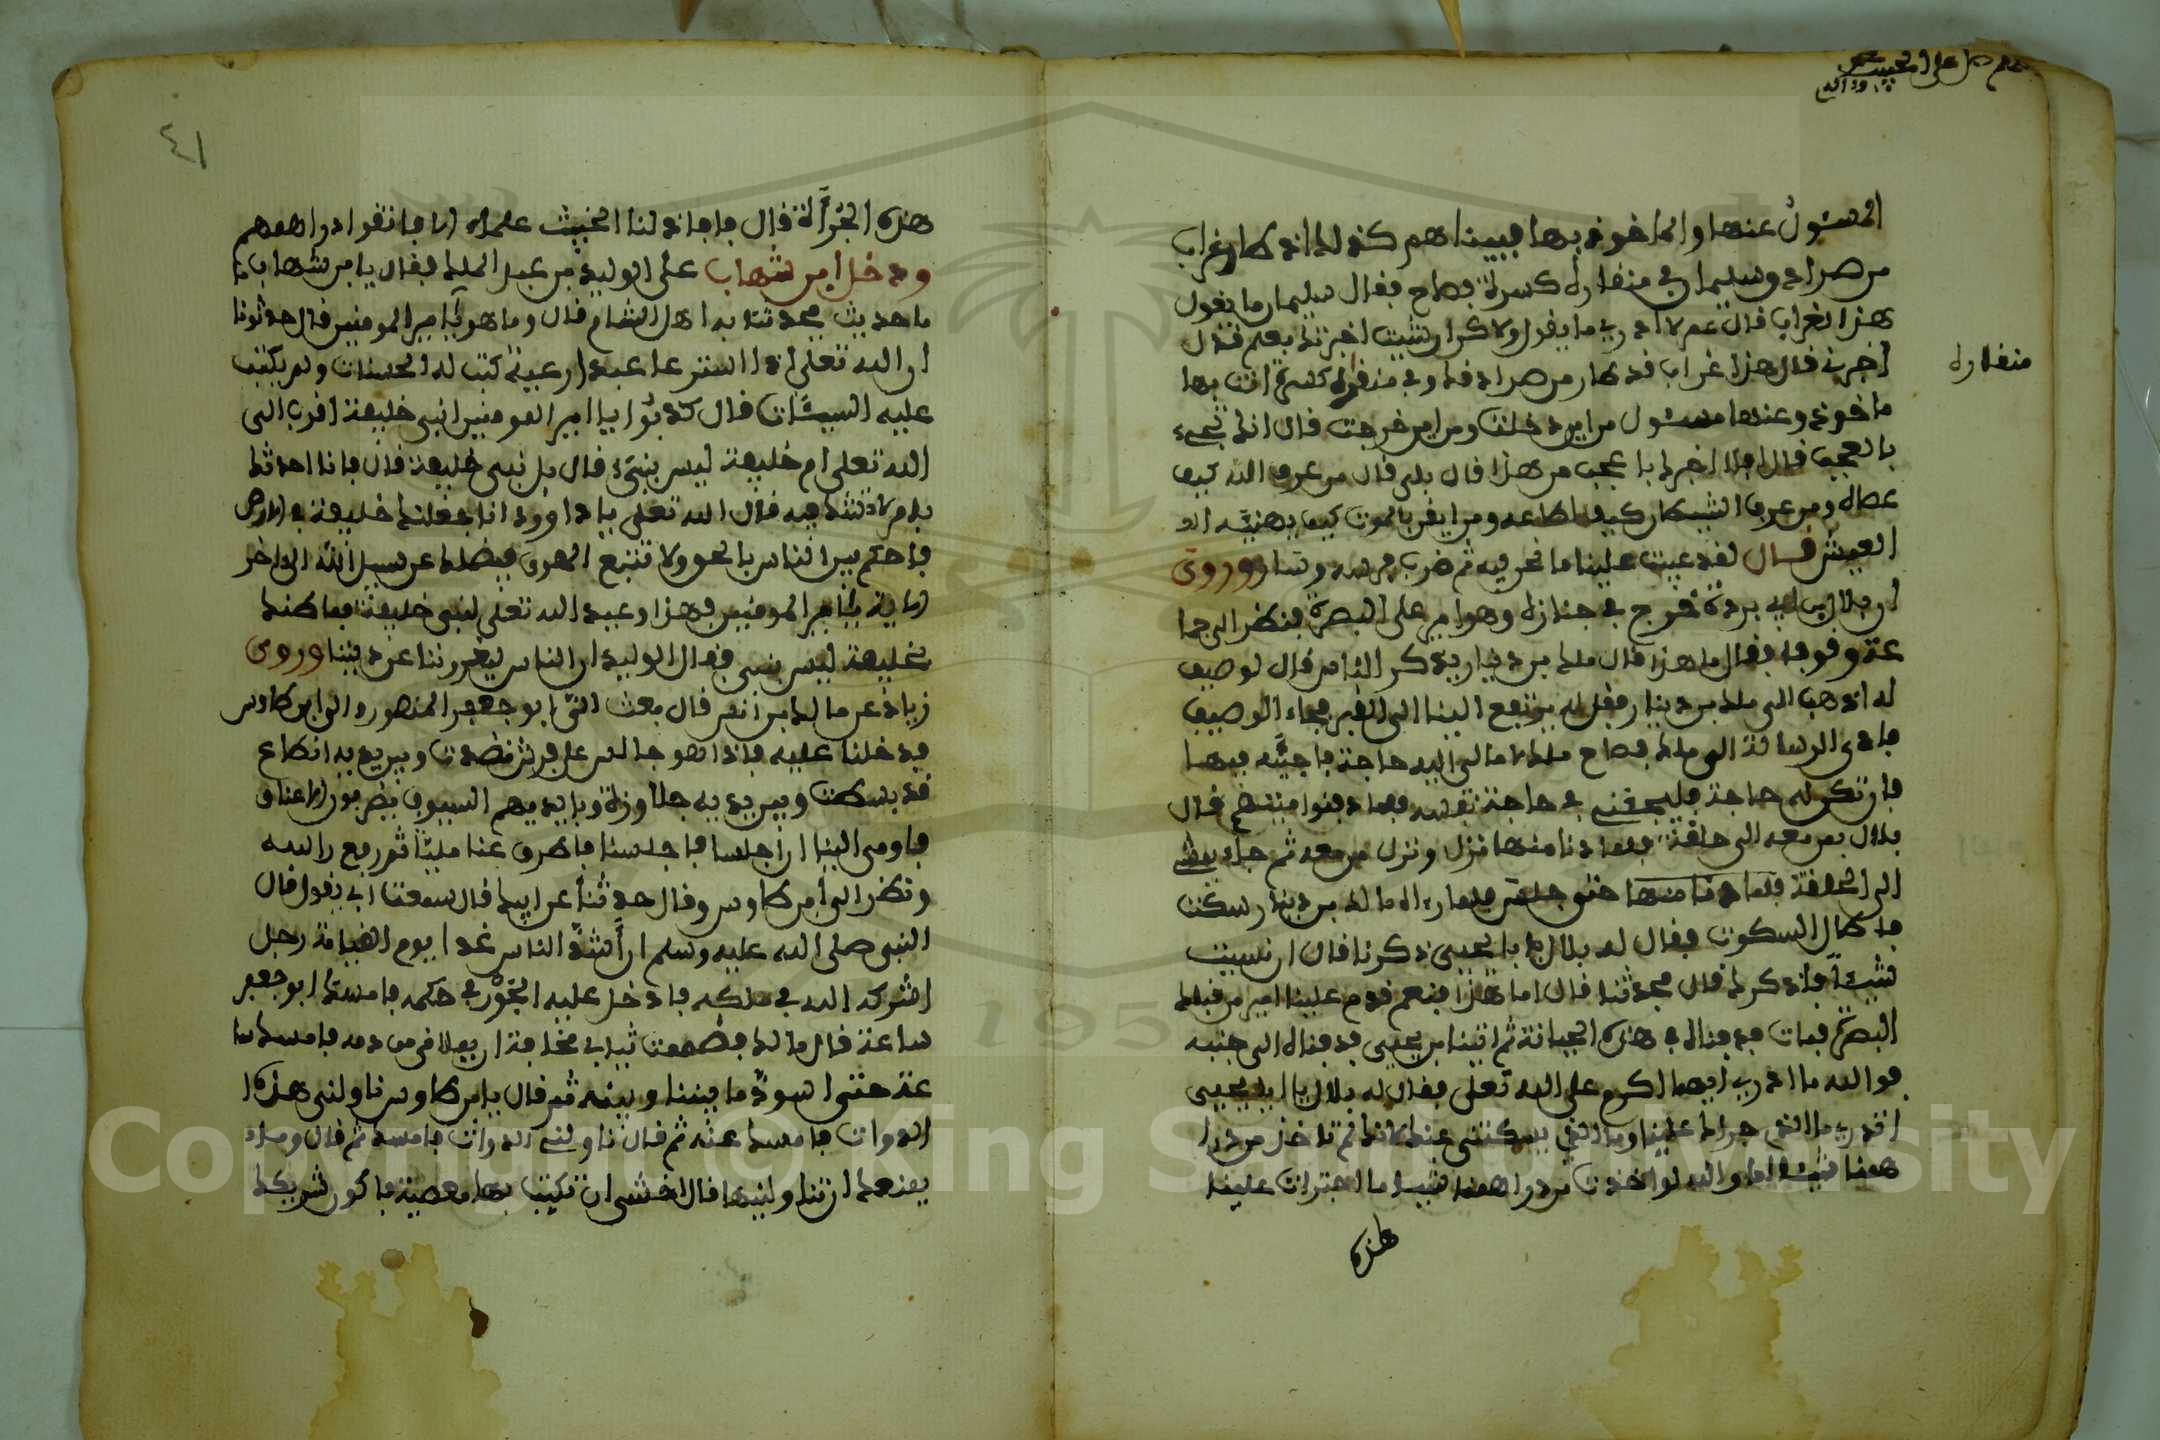 المسئول عنها والماخوذ بها فبيناهم كذلك اذ طار غراب
من صرادق سليمان في منقاره كسرة فصاح فقال سليمان ما يقول
هذا الغراب قال عمر لا ادري ما يقول ولاكن ان شيت اخبرتك بعلم قال
اخبرني قال هذا غراب قد طار من صرادقك وفي منقاره كسرة انت بها
ماخوذ وعنها مسئول من اين دخلت ومن اين خرجت قال انك تجيء
بالعجب قال افلا اخبرك باعجب من هذا قال بلى قال من عرف الله كيف
عصاه ومن عرف الشيطان كيف اطاعه ومن ايقن بالموت كيف يهنيه
العيش قال لقد غيبت علينا ما نحن فيه ثم ضرب فرسه وسار وروي
ان بلال بن ابي بردة خرج في جنازة وهو امير على البصرة فنظر الى جما
عة وقوفا فقال ما هذا قال ملك بن دينار يذكر الناس فقال لوصيف
له اذهب الى ملك بن دينار فقل له يرتفع الينا الى القبر فجاء الوصيف
فادى الرسالة الى ملك فصاح ملك ما لي اليه حاجة فاجيئه فيها
فان تكن له حاجة فليجئني في حاجة نفسه فلما دفنوا ميتهم قال
بلال بمن معه الى حلقة فلما دنا منها نزل ونزل من معه ثم جاء يمشي
الى الحلقة فلما دنا منها حتى جلس فلما راه مالك بن دينار سكت
فاطال السكوت فقال له بلال يا با يحيى ذكرنا قال ان نسيت
شيئا فاذكرك قال فحدثنا قال اما هذا فنعم قدم علينا امير من قبلك
البصرة فمات فدفناه في هذه الجبانة ثم اتينا بزنجي فدفناه الى جنبه
فوالله ما ادري ايهما اكرم على الله تعلى فقال له بلال يا ابا يحيى
اتدري ما الذي جراك علينا وما الذي يسكتنا عنك لانك لم تاخذ من درا
همنا شيئا اما والله لو اخذت من دراهمنا شيئا ما اجترات علينا
هذه
منقاره
هذه الجرأة قال فافادنا الخبيث علما الا فاتقوا دراهمهم
ودخل ابن شهاب على الوليد بن عبد الملك فقال يا بن شهاب
ما حديث يحدثنا به اهل الشام قال وما هو يا امير المومنين قال حدثونا
ان الله تعلى اذا استرعا عبدا رعية كتب له الحسنات ولم يكتب
عليه السيئات قال كذبوا يا امير المومنين انبي خليفة اقرب الى
الله تعلى ام خليفة ليس بنبيء قال بل نبي خليفة قال فانا احدثك
بما لا تشك فيه قال الله تعلى يا داوود انا جعلنك خليفة في الارض
فاحكم بين الناس بالحق ولا تتبع الهوى فيضلك عن سبيل الله الى اخر
الاية يا امير المومنين فهذا وعيد الله تعلى لنبي خليفة فما ظنك
بخليفة ليس بنبي فقال الوليد ان الناس ليغروننا عن ديننا وروى
زياد عن مالك بن انس قال بعث الي ابو جعفر المنصور والى ابن طاوس
فدخلنا عليه فاذا هو جالس على فرش نضدت وبين يديه انطاع
قد بسطت وبين يديه جلاوزة وبايديهم السيوف يضربون الاعناق
فاومى الينا ان اجلسا فاجلسنا فاطرق عنا مليا ثم رفع راسه
ونظر الى ابن طاوس وقال حدثنا عن ابيك قال سمعت ابي يقول قال
النبي صلى الله عليه وسلم ان أشد الناس غدا يوم القيامة رجل
اشركه الله في ملكه فادخل عليه الجور في حكمه فامسك ابو جعفر
ساعة قال مالك فضممت ثيابي مخافة ان يملاني من دمه فامسك سا
عة حتى اسود ما بيننا وبينه ثم قال يا بن طاوس ناولني هذه
الدوات فامسك عنه ثم قال ناولني الدوات فامسك ثم قال وما
يمنعك ان تناولنيها قال اخشى ان تكتب بها معصية فاكون شريكك
٤١